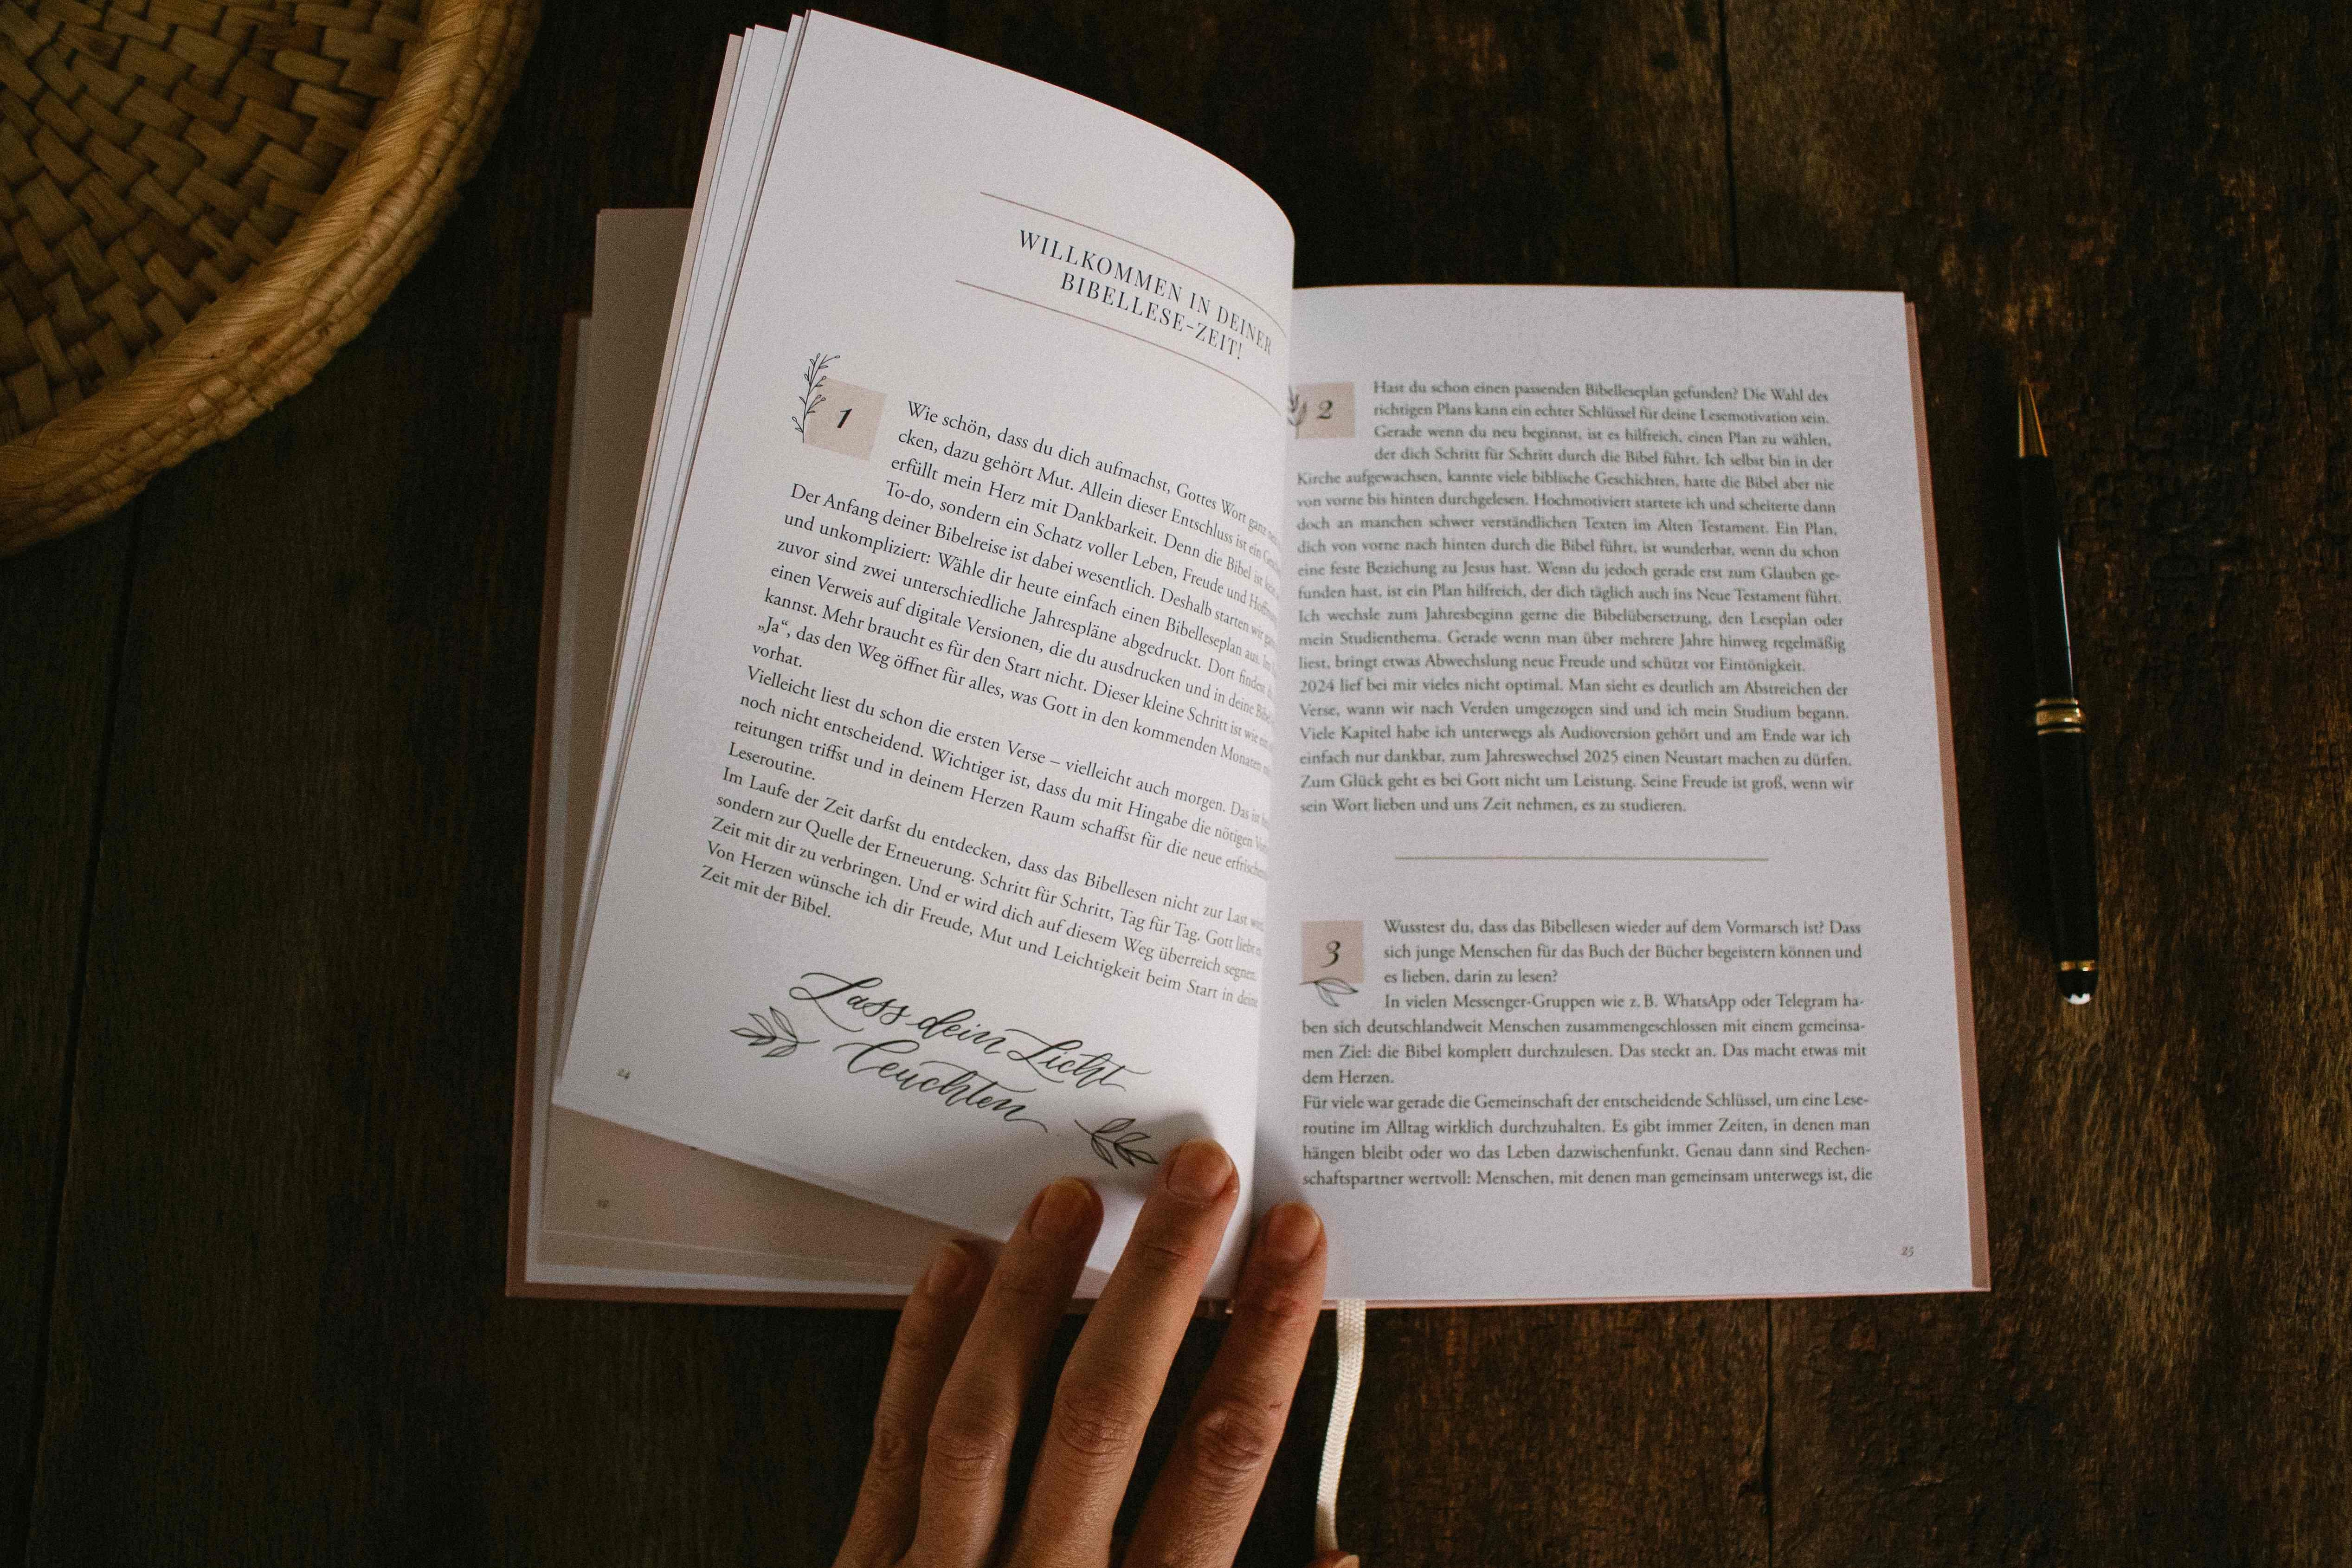 WILLKOMMEN IN DEINER
BIBELLESE-ZEIT!
1
Wie schön, dass du dich aufmachst, Gottes Wort ganz
cken, dazu gehört Mut. Allein dieser Entschluss ist ein
erfüllt mein Herz mit Dankbarkeit. Denn die Bibel ist kein
To-do, sondern ein Schatz voller Leben, Freude und
Der Anfang deiner Bibelreise ist dabei wesentlich. Deshalb starten wir
und unkompliziert: Wähle dir heute einfach einen Bibelleseplan aus. Im
zuvor sind zwei unterschiedliche Jahrespläne abgedruckt. Dort findest
einen Verweis auf digitale Versionen, die du ausdrucken und in deine
kannst. Mehr braucht es für den Start nicht. Dieser kleine Schritt ist wie ein
„Ja“, das den Weg öffnet für alles, was Gott in den kommenden Monaten
vorhat.
Vielleicht liest du schon die ersten Verse – vielleicht auch morgen. Das ist
noch nicht entscheidend. Wichtiger ist, dass du mit Hingabe die nötigen
reitungen triffst und in deinem Herzen Raum schaffst für die neue
Leseroutine.
Im Laufe der Zeit darfst du entdecken, dass das Bibellesen nicht zur Last
sondern zur Quelle der Erneuerung. Schritt für Schritt, Tag für Tag. Gott liebt
Zeit mit dir zu verbringen. Und er wird dich auf diesem Weg überreich segnen.
Von Herzen wünsche ich dir Freude, Mut und Leichtigkeit beim Start in deine
Zeit mit der Bibel.
Lass dein Licht
leuchten
24
2
Hast du schon einen passenden Bibelleseplan gefunden? Die Wahl des
richtigen Plans kann ein echter Schlüssel für deine Lesemotivation sein.
Gerade wenn du neu beginnst, ist es hilfreich, einen Plan zu wählen,
der dich Schritt für Schritt durch die Bibel führt. Ich selbst bin in der
Kirche aufgewachsen, kannte viele biblische Geschichten, hatte die Bibel aber nie
von vorne bis hinten durchgelesen. Hochmotiviert startete ich und scheiterte dann
doch an manchen schwer verständlichen Texten im Alten Testament. Ein Plan,
dich von vorne nach hinten durch die Bibel führt, ist wunderbar, wenn du schon
eine feste Beziehung zu Jesus hast. Wenn du jedoch gerade erst zum Glauben ge-
funden hast, ist ein Plan hilfreich, der dich täglich auch ins Neue Testament führt.
Ich wechsle zum Jahresbeginn gerne die Bibelübersetzung, den Leseplan oder
mein Studienthema. Gerade wenn man über mehrere Jahre hinweg regelmäßig
liest, bringt etwas Abwechslung neue Freude und schützt vor Eintönigkeit.
2024 lief bei mir vieles nicht optimal. Man sieht es deutlich am Abstreichen der
Verse, wann wir nach Verden umgezogen sind und ich mein Studium begann.
Viele Kapitel habe ich unterwegs als Audioversion gehört und am Ende war ich
einfach nur dankbar, zum Jahreswechsel 2025 einen Neustart machen zu dürfen.
Zum Glück geht es bei Gott nicht um Leistung. Seine Freude ist groß, wenn wir
sein Wort lieben und uns Zeit nehmen, es zu studieren.
3
Wusstest du, dass das Bibellesen wieder auf dem Vormarsch ist? Dass
sich junge Menschen für das Buch der Bücher begeistern können und
es lieben, darin zu lesen?
In vielen Messenger-Gruppen wie z. B. WhatsApp oder Telegram ha-
ben sich deutschlandweit Menschen zusammengeschlossen mit einem gemeinsa-
men Ziel: die Bibel komplett durchzulesen. Das steckt an. Das macht etwas mit
dem Herzen.
Für viele war gerade die Gemeinschaft der entscheidende Schlüssel, um eine Lese-
routine im Alltag wirklich durchzuhalten. Es gibt immer Zeiten, in denen man
hängen bleibt oder wo das Leben dazwischenfunkt. Genau dann sind Rechen-
schaftspartner wertvoll: Menschen, mit denen man gemeinsam unterwegs ist, die
25